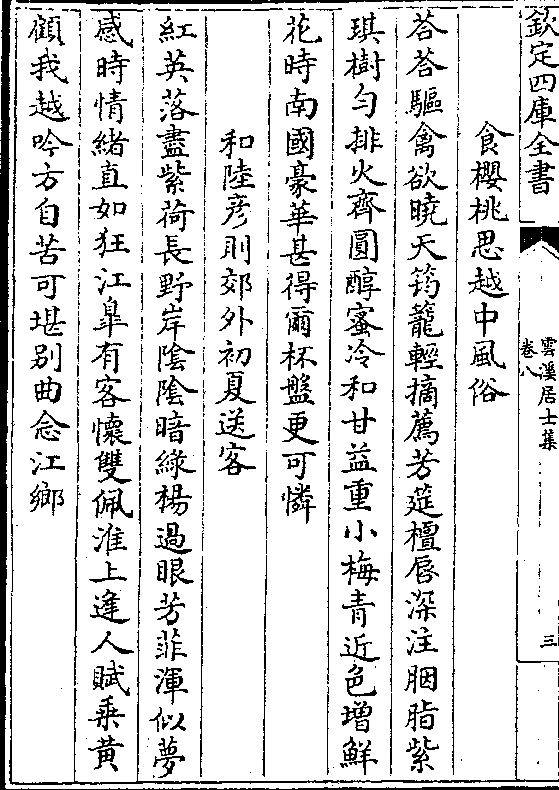 欽定四庫全書
雲溪居士集
卷八
三
食櫻桃思越中風俗
荅荅驅禽欲曉天筠籠輕摘薦芳筵檀唇深注胭脂紫
琪樹勻排火齊圓醇蜜冷和甘益重小梅青近色增鮮
花時南國豪華甚得爾杯盤更可憐
和陸彦則郊外初夏送客
紅英落盡紫荷長野岸陰陰暗綠楊過眼芳菲渾似夢
感時情緒直如狂江臯有客懷雙佩淮上逢人賦乗黄
顧我越吟方自苦可堪别曲念江鄉